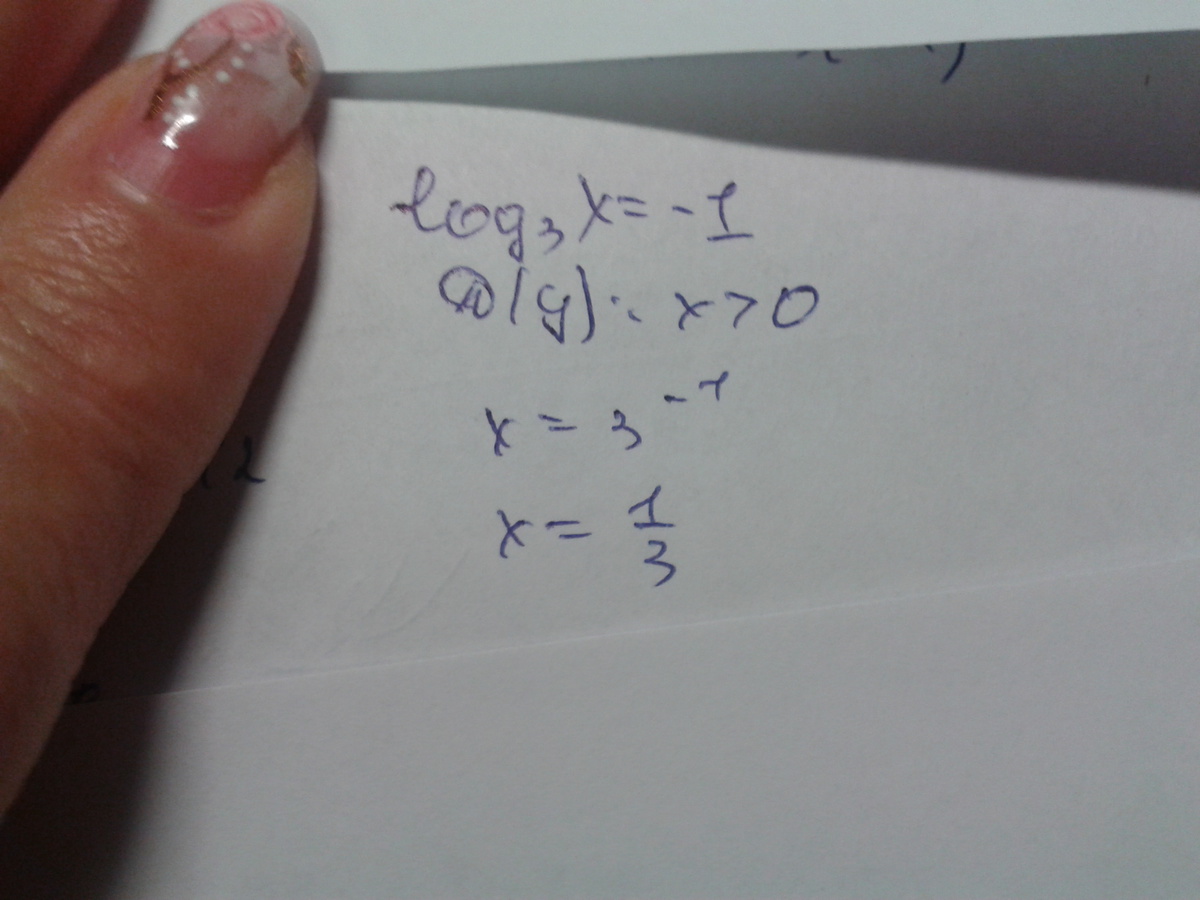 log₃ x = -1
D(y): x > 0
x = 3⁻¹
x = 1/3